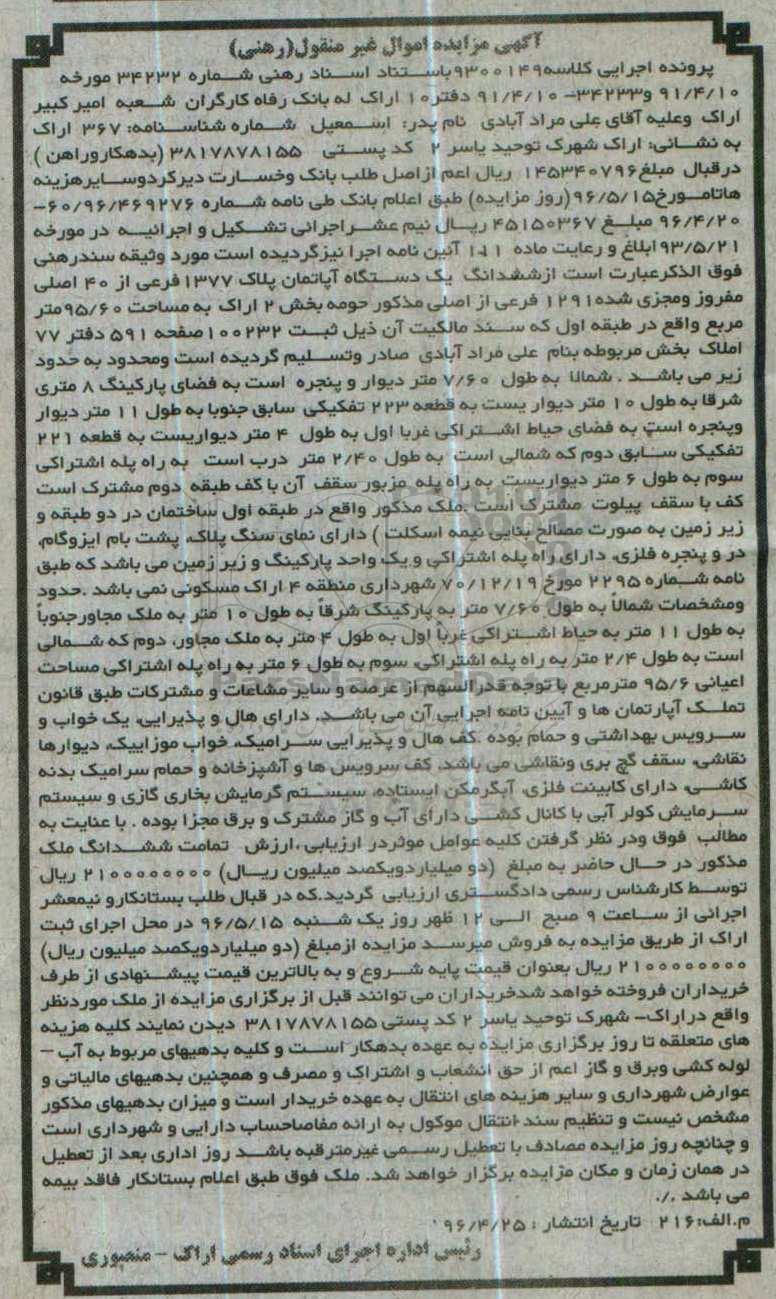 آگهی مزایده اموال غیر منقول(رهنی)
پرونده اجرایی کلاسه۹۳۰۰۱۴۹باستناد اسناد رهنی شماره ۳۴۲۳۲ مورخه
۹۱/۴/۱۰ و۳۴۲۳۳– ۹۱/۴/۱۰ دفتر۱۰ اراک له بانک رفاه کارگران شعبه امیر کبیر
اراک وعلیه آقای علی مراد آبادی نام پدر: اسمعیل شماره شناسنامه: ۳۶۷ اراک
به نشانی: اراک شهرک توحید یاسر ۲ کد پستی ۳۸۱۷۸۷۸۱۵۵ (بدهکاروراهن )
درقبال مبلغ۱۴۵۳۴۰۷۹۶ ریال اعم ازاصل طلب بانک وخسارت دیرکردوسایرهزینه
هاتامورخ۹۶/۵/۱۵(روز مزایده) طبق اعلام بانک طی نامه شماره ۶۰/۹۶/۴۶۹۲۷۶–
۹۶/۴/۲۰ مبلغ ۴۵۱۵۰۳۶۷ ریال نیم عشراجرانی تشکیل و اجرائیه در مورخه
۹۳/۵/۲۱ ابلاغ و رعایت ماده ۱۰۱ آئین نامه اجرا نیزگردیده است مورد وثیقه سندرهنی
فوق الذکرعبارت است ازششدانگ یک دستگاه آپاتمان پلاک ۱۳۷۷فرعی از ۴۰ اصلی
مفروز ومجزی شده۱۲۹۱ فرعی از اصلی مذکور حومه بخش ۲ اراک به مساحت ۹۵/۶۰متر
مربع واقع در طبقه اول که سند مالکیت آن ذیل ثبت ۱۰۰۲۳۲صفحه ۵۹۱ دفتر ۷۷
املاک بخش مربوطه بنام علی مراد آبادی صادر وتسلیم گردیده است ومحدود به حدود
زیر می باشد . شمالا به طول ۷/۶۰ متر دیوار و پنجره است به فضای پارکینگ ۸ متری
شرقا به طول ۱۰ متر دیوار یست به قطعه ۲۲۳ تفکیکی سابق جنوبا به طول ۱۱ متر دیوار
وپنجره است به فضای حیاط اشتراکی غربا اول به طول ۴ متر دیواریست به قطعه ۲۲۱
تفکیکی سابق دوم که شمالی است به طول ۲/۴۰ متر درب است به راه پله اشتراکی
سوم به طول ۶ متر دیواریست به راه پله مزبور سقف آن با کف طبقه دوم مشترک است
کف با سقف پیلوت مشترک است .ملک مذکور واقع در طبقه اول ساختمان در دو طبقه و
زیر زمین به صورت مصالح بنایی نیمه اسکلت ) دارای نمای سنگ پلاک، پشت بام ایزوگام،
در و پنجره فلزی، دارای راه پله اشتراکی و یک واحد پارکینگ و زیر زمین می باشد که طبق
نامه شماره ۲۲۹۵ مورخ ۷۰/۱۲/۱۹ شهرداری منطقه ۴ اراک مسکونی نمی باشد .حدود
ومشخصات شمالاً به طول ۷/۶۰ متر به پارکینگ شرقاً به طول ۱۰ متر به ملک مجاورجنوباً
به طول ۱۱ متر به حیاط اشتراکی غرباً اول به طول ۴ متر به ملک مجاور، دوم که شمالی
است به طول ۲/۴ متر به راه پله اشتراکی، سوم به طول ۶ متر به راه پله اشتراکی مساحت
اعیانی ۹۵/۶ مترمربع با توجه قدرالسهم از عرصه و سایر مشاعات و مشترکات طبق قانون
تملک آپارتمان ها و آیین نامه اجرایی آن می باشد. دارای هال و پذیرایی، یک خواب و
سرویس بهداشتی و حمام بوده .کف هال و پذیرایی سرامیک، خواب موزاییک، دیوارها
نقاشی، سقف گچ بری ونقاشی می باشد. کف سرویس ها و آشپزخانه و حمام سرامیک بدنه
کاشی، دارای کابینت فلزی، آبگرمکن ایستاده، سیستم گرمایش بخاری گازی و سیستم
سرمایش کولر آبی با کانال کشی دارای آب و گاز مشترک و برق مجزا بوده . با عنایت به
مطالب فوق ودر نظر گرفتن کلیه عوامل موثردر ارزیابی ،ارزش تمامت ششدانگ ملک
مذکور در حال حاضر به مبلغ (دو میلیاردویکصد میلیون ریال) ۲۱۰۰۰۰۰۰۰۰ ریال
توسط کارشناس رسمی دادگستری ارزیابی گردید.که در قبال طلب بستانکارو نیمعشر
اجرانی از ساعت ۹ صبح الی ۱۲ ظهر روز یک شنبه ۹۶/۵/۱۵ در محل اجرای ثبت
اراک از طریق مزایده به فروش میرسد مزایده ازمبلغ (دو میلیاردویکصد میلیون ریال)
۲۱۰۰۰۰۰۰۰۰ ریال بعنوان قیمت پایه شروع و به بالاترین قیمت پیشنهادی از طرف
خریداران فروخته خواهد شدخریداران می توانند قبل از برگزاری مزایده از ملک موردنظر
واقع دراراک– شهرک توحید یاسر ۲ کد پستی ۳۸۱۷۸۷۸۱۵۵ دیدن نمایند کلیه هزینه
های متعلقه تا روز برگزاری مزایده به عهده بدهکار است و کلیه بدهیهای مربوط به آب –
لوله کشی وبرق و گاز اعم از حق انشعاب و اشتراک و مصرف و همچنین بدهیهای مالیاتی و
عوارض شهرداری و سایر هزینه های انتقال به عهده خریدار است و میزان بدهیهای مذکور
مشخص نیست و تنظیم سند انتقال موکول به ارائه مفاصاحساب دارایی و شهرداری است
و چنانچه روز مزایده مصادف با تعطیل رسمی غیرمترقبه باشد روز اداری بعد از تعطیل
در همان زمان و مکان مزایده برگزار خواهد شد. ملک فوق طبق اعلام بستانکار فاقد بیمه
می باشد ./.
م.الف:۲۱۶ تاریخ انتشار : ۹۶/۴/۲۵
رئیس اداره اجرای اسناد رسمی اراک – منصوری